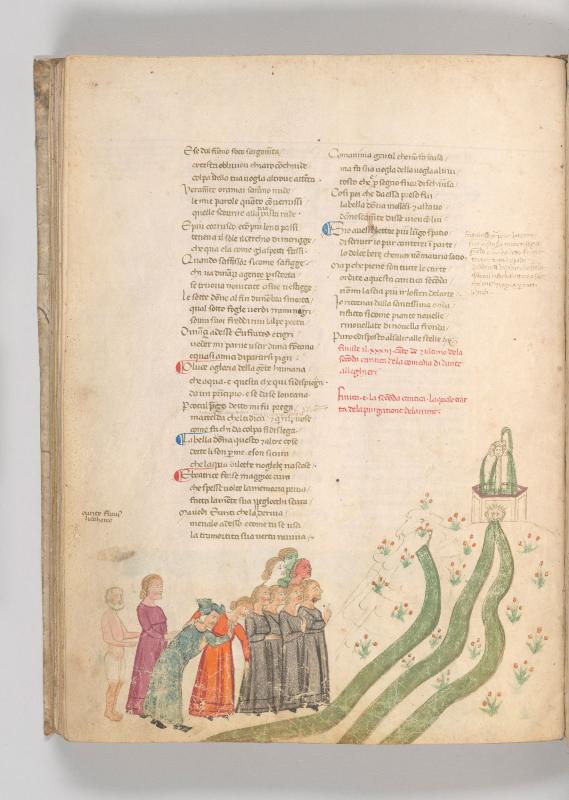 E se dal fumo foco sargom̄ta
cotesta obliuion chiaro conchiude
colpa della tua uoglia altroue att̄ta
Veram̄te oramai sarāno nude
le mie parole quāto cōuerrassi
quelle scourire alla tua uista rude
E piu corrusco & cō piu lenti passi
teneua il sole il cerchio di merigge
che qua e la come gliaspetti fassi
Quando saffisser si come saffigge
chi ua dinanzi agente per iscorta
se truoua nouitate o sue uestigge
Le sette dōne al fin dunōbra smorta
qual sotto foglie uerdi & rami nigri
soura suoi freddi riui lalpe porta
Dināzi adesse Eufrates & tigri
ueder mi parue uscir duna fōtana
& quasi amici dipartirsi pigri
O luce o gloria della gēte humana
che aqua e questa che qui si dispiega
da un principio & se da se lontana
Per cotal prego detto mi fu prega
matelda chel ti dica & qui rispose
come fa chi da colpa si dislega
La bella dōna questo & altre cose
dette li son per me & son sicura
che laqua di lethe nogliele nascose
E beatrice forse maggior cura
che spesse uolte la memoria priua
fatto la mēte sua negliocchi scura
Ma uedi Eunoe che la deriua
menalo adesso & come tu se usa
la tramortita sua uertu rauuiua
Come anima gentil che nō fa scusa
ma fa sua uoglia della uoglia altrui
tosto che per segno fuor dischiusa
Cosi poi che da essa preso fui
la bella dōna mossesi & a statio
donnescam̄te disse uien cō lui
Sio auessi lettor piu lūgo spatio
da scriuere io pur cantere in parte
lo dolce ber che mai nō mauria satio
Ma per che piene son tutte le carte
ordite a questa cantica secōda
nō mi lascia piu ir lo fren del arte
Io ritornai dalla santissima onda
rifatto si come piante nouelle
rinouellate di nouella fronda
Puro & disposto a salire alle stelle
finisce il .xxxiii. cāto & ultimo de la
secōda cantica dela comedia di dante
allegheri
finita e la secōda cantica la quale trat
ta dela purgatione delanime